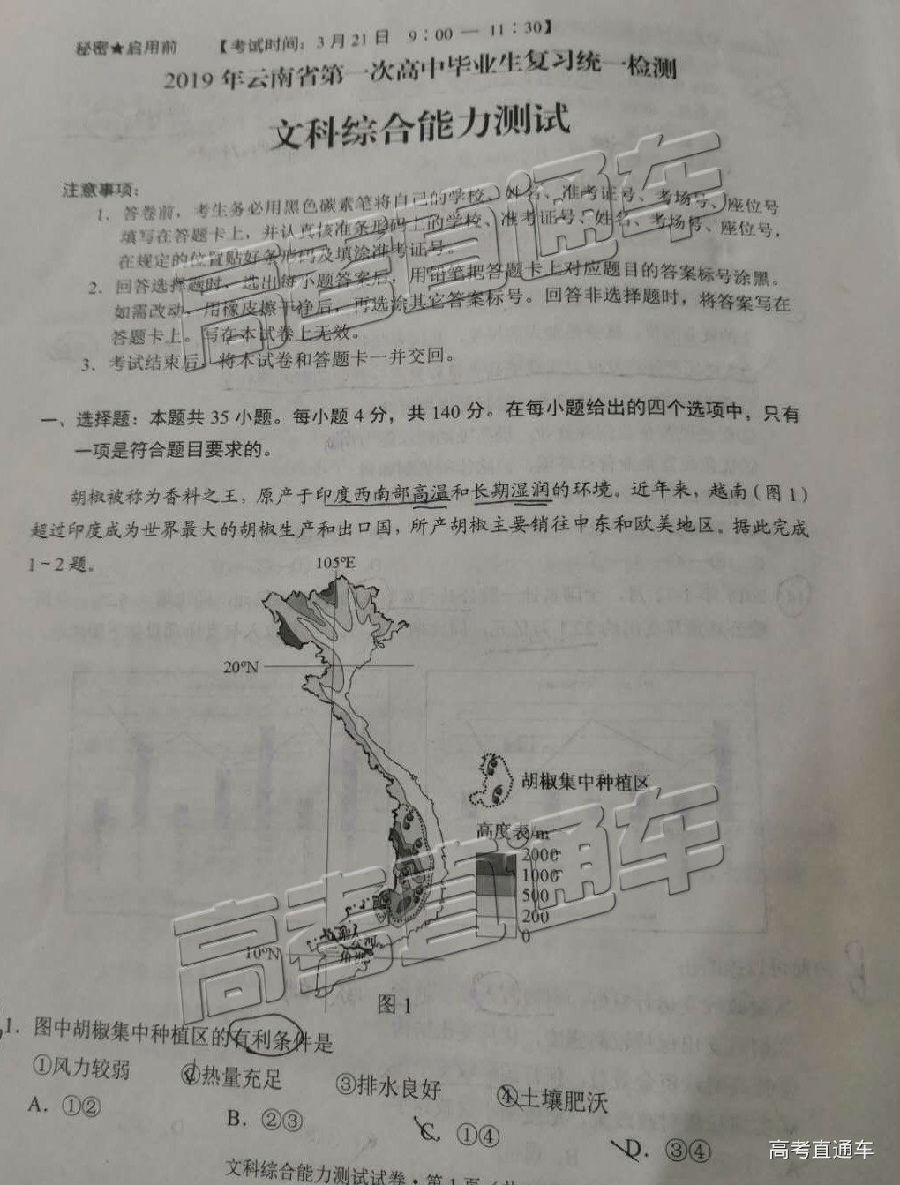 秘密★启用前 【考试时间：3月21日 9：00 — 11：30】
2019年云南省第一次高中毕业生复习统一检测
文科综合能力测试
注意事项：
1．答卷前，考生务必用黑色碳素笔将自己的学校、姓名、准考证号、考场号、座位号
填写在答题卡上，并认真核准条形码上的学校、准考证号、姓名、考场号、座位号，
在规定的位置贴好条形码及填涂准考证号。
2．回答选择题时，选出每小题答案后，用铅笔把答题卡上对应题目的答案标号涂黑。
如需改动，用橡皮擦干净后，再选涂其它答案标号。回答非选择题时，将答案写在
答题卡上。写在本试卷上无效。
3．考试结束后，将本试卷和答题卡一并交回。
一、选择题：本题共35小题。每小题4分，共140分。在每小题给出的四个选项中，只有
一项是符合题目要求的。
胡椒被称为香料之王，原产于印度西南部高温和长期湿润的环境。近年来，越南（图1）
超过印度成为世界最大的胡椒生产和出口国，所产胡椒主要销往中东和欧美地区。据此完成
1~2题。
105°E
20°N
胡椒集中种植区
高度表/m
2000
1000
500
200
0
10°N
图1
1．图中胡椒集中种植区的有利条件是
①风力较弱 ②热量充足 ③排水良好 ④土壤肥沃
A．①② B．②③ C．①④ D．③④
文科综合能力测试试卷·第1页
高考直通车
高考直通车
高考直通车